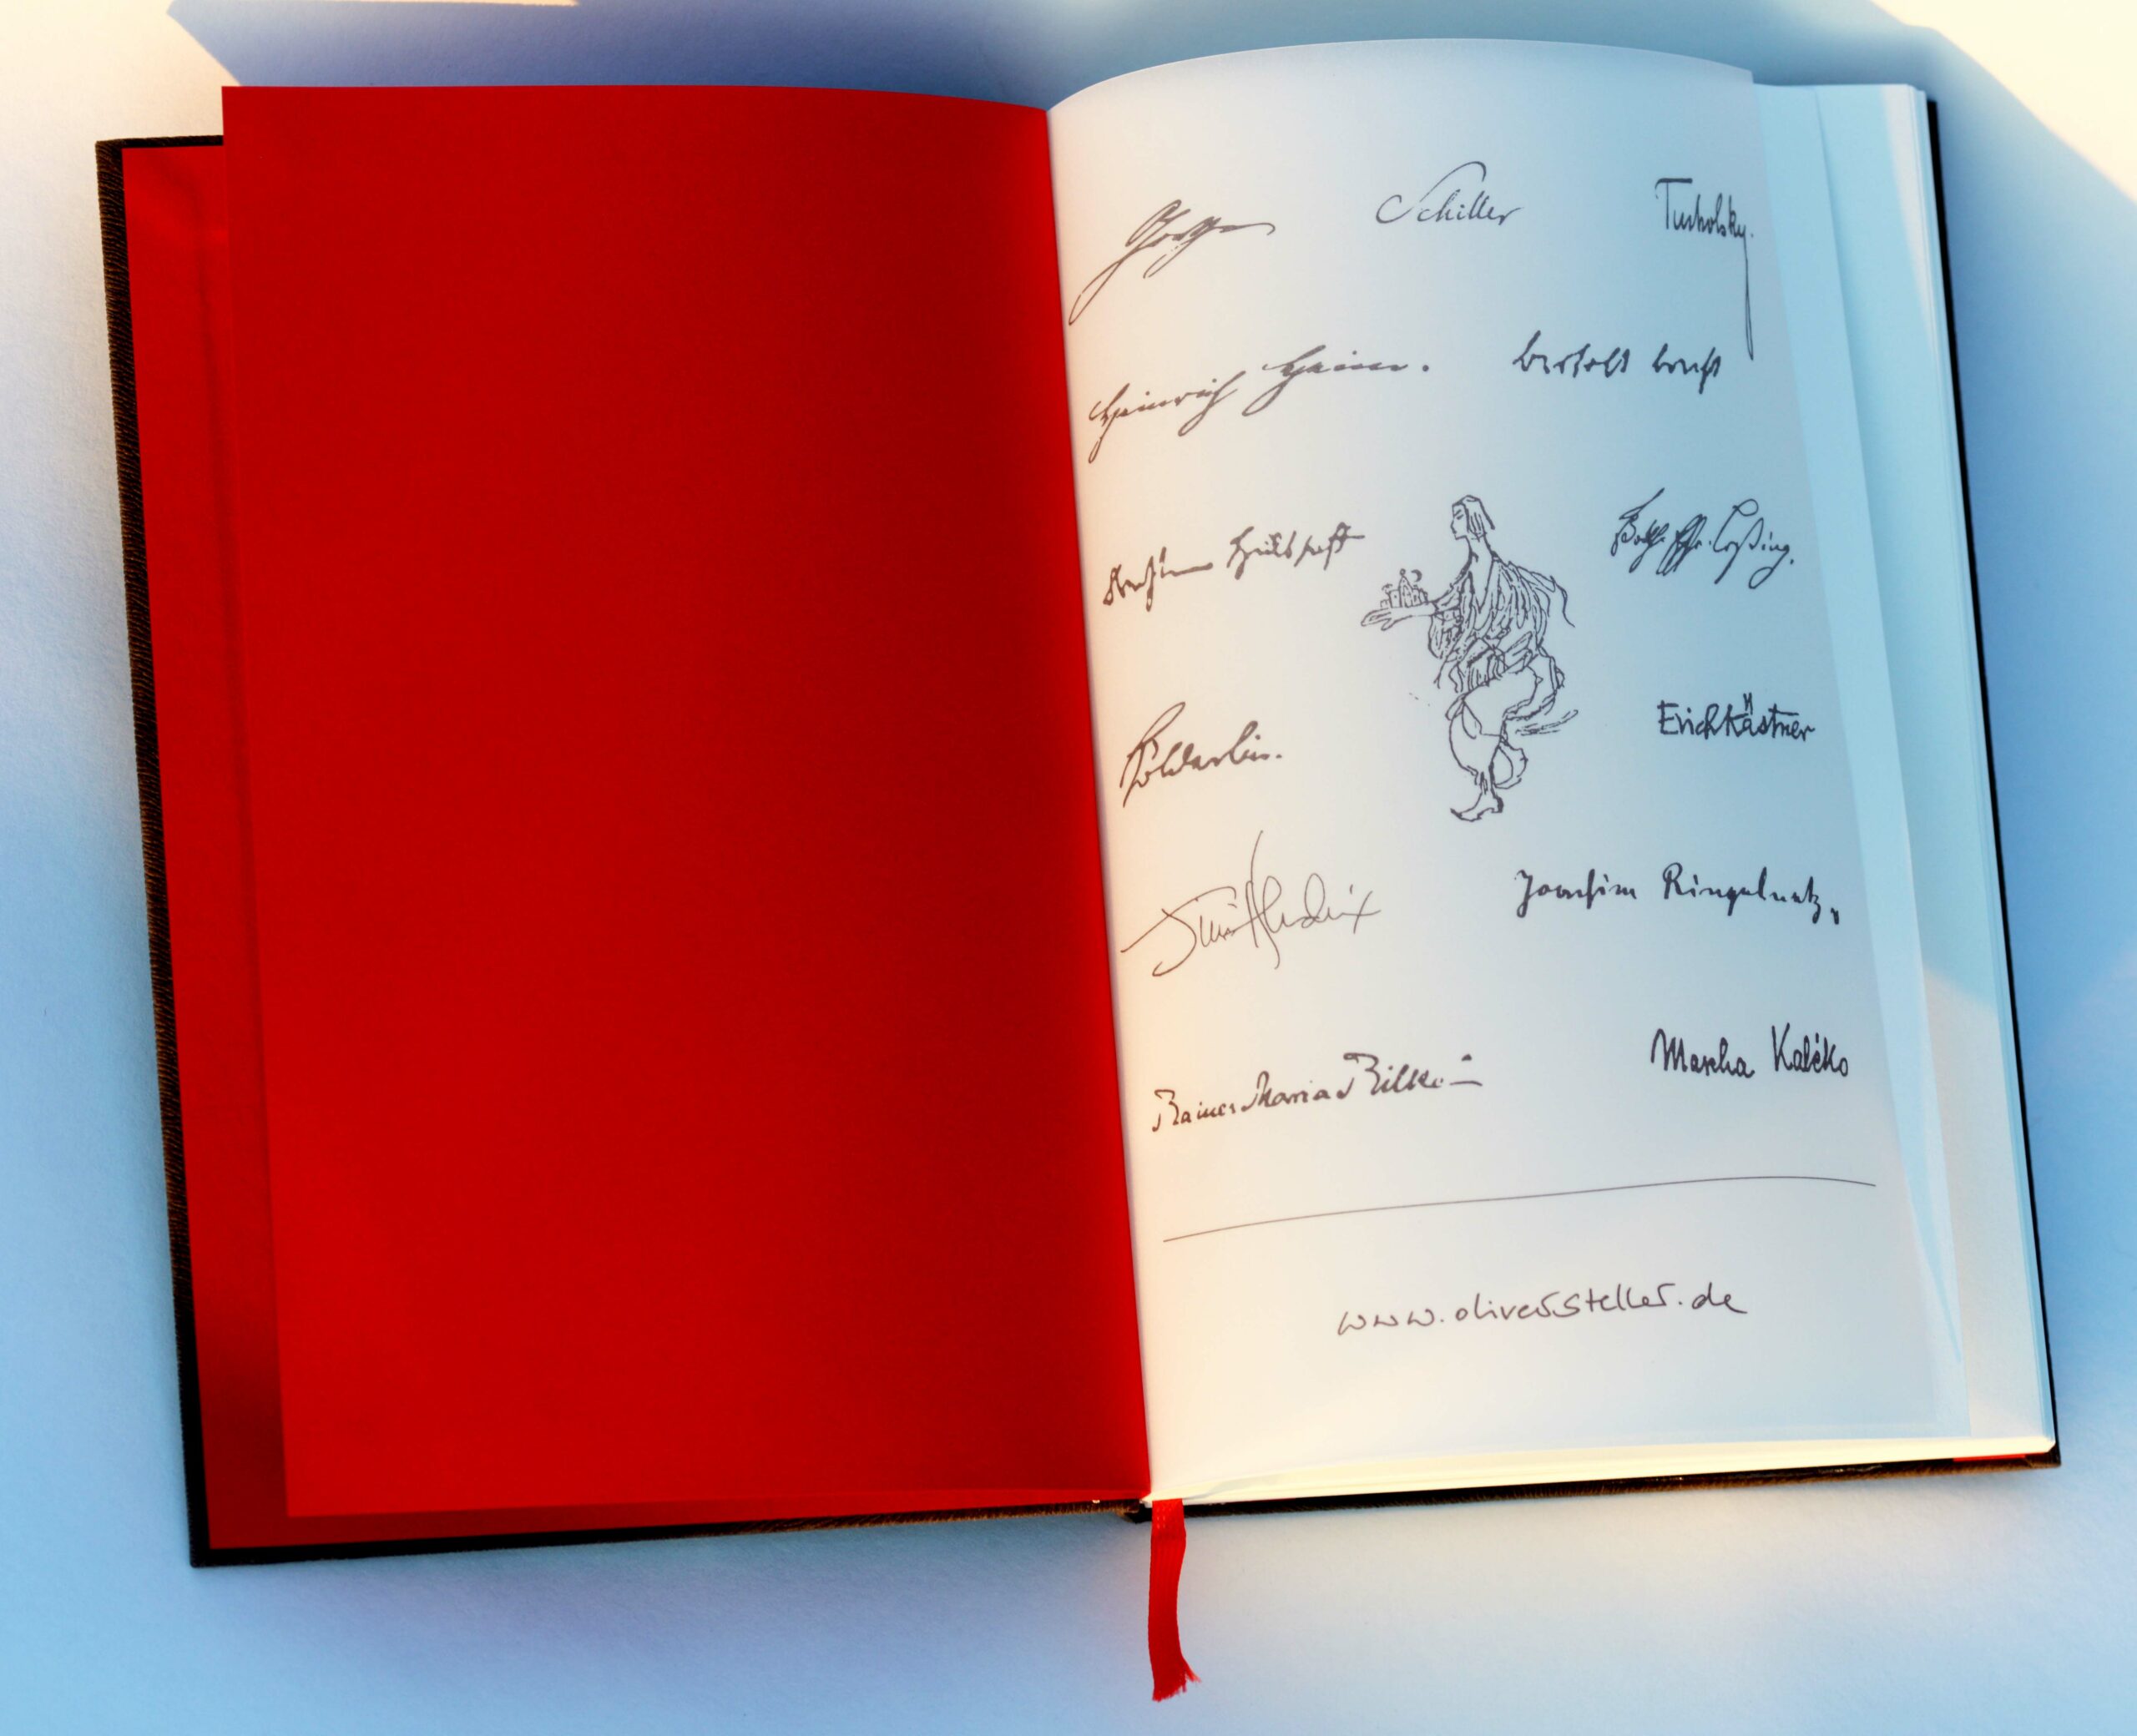 Goethe Schiller Tucholsky.
Heinrich Heine. bertolt brecht
Gotth. Ephr. Lessing.
Hölderlin. Erich Kästner
Jimi Hendrix Joachim Ringelnatz,
Rainer Maria Rilke Mascha Kaléko
www.oliversteller.de